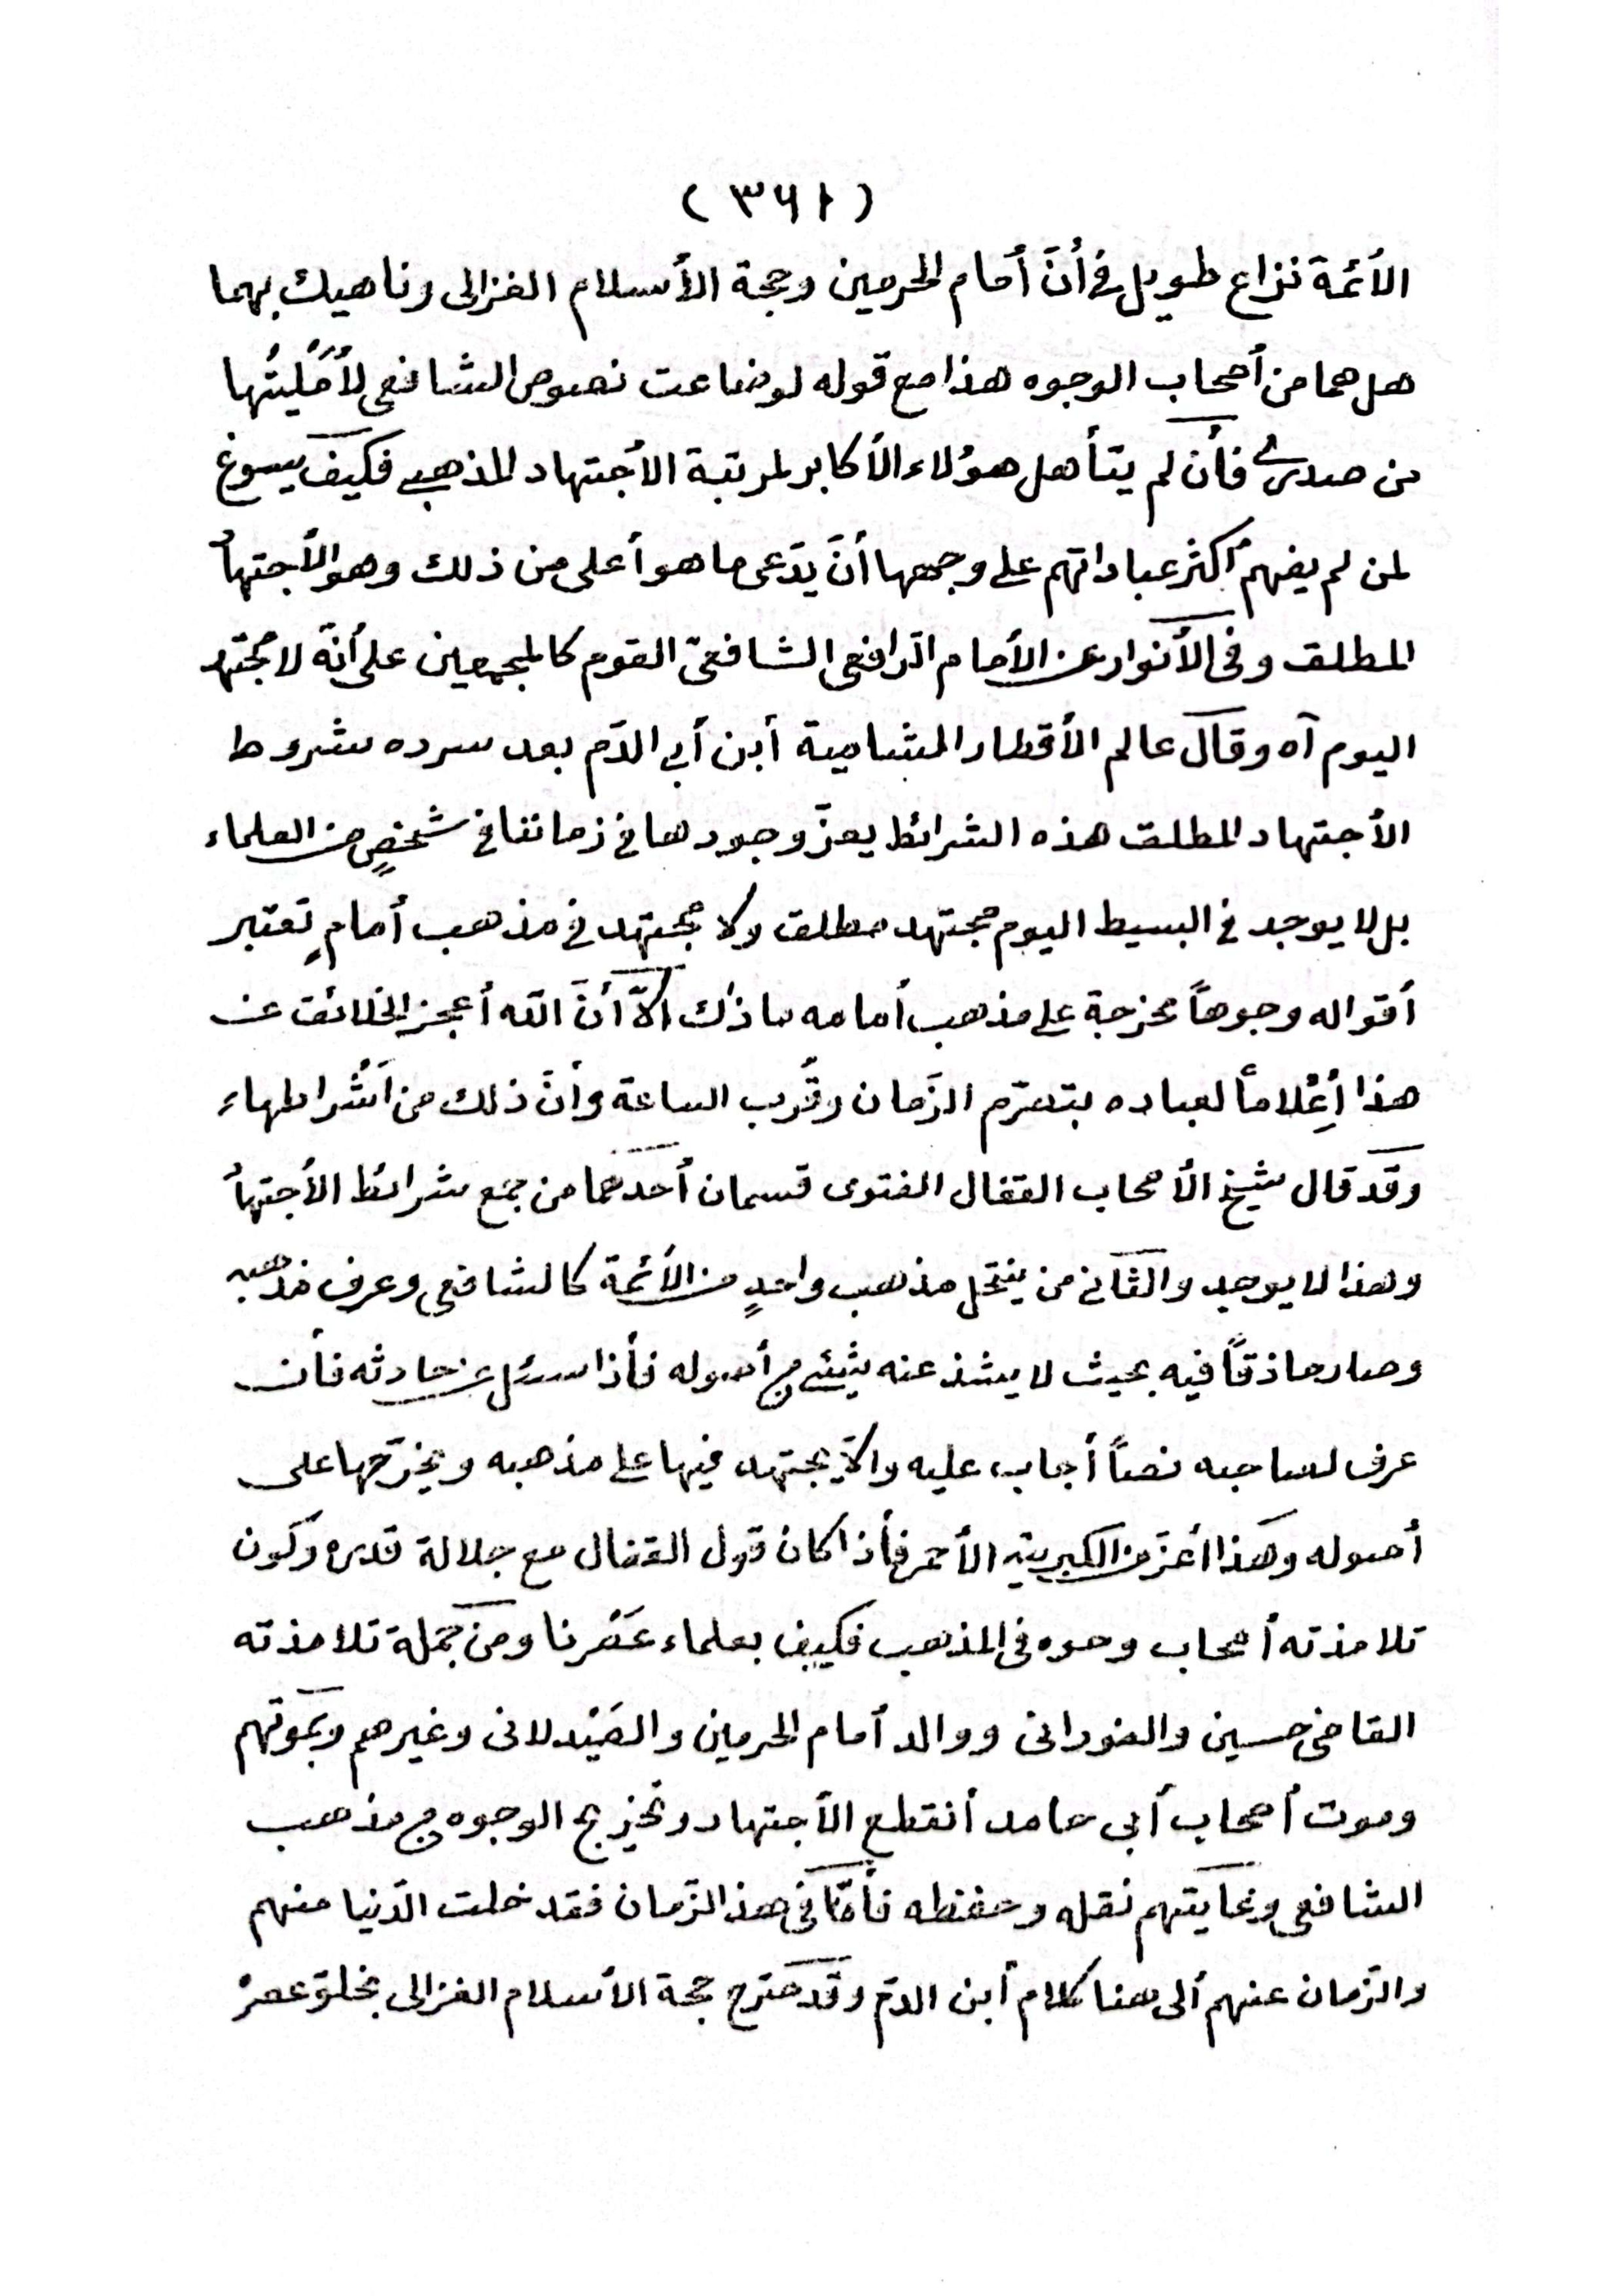 (٣٦١)
الأئمة نزاع طويل في أنَّ أمام الحرمين وحجة الأسلام الغزالى وناهيك بهما
هل هما من أصحاب الوجوه هذا مع قوله لو ضاعت نصوص الشافعى لأُمْلَيتُها
من صدرى فأن لم يتأهل هؤلاء الأكابر لمرتبة الأجتهاد المذهبى فكيف يسوغ
لمن لم يفهم أكثر عباداتهم على وجهها أنَّ يدّعى ما هو أعلى من ذلك وهو الأجتهاد
المطلق وفى الأنوار عن الأمام الرافعى الشافعىّ القوم كالمجمعين على أنّه لا مجتهد
اليوم آه وقال عالم الأقطار الشامية أبن أبى الدّم بعد سرده شروط
الأجتهاد المطلق هذه الشرائط يعزّ وجودها في زماننا في شخصٍ من العلماء
بل لا يوجد في البسيط اليوم مجتهد مطلق ولا مجتهد في مذهب أمامٍ تعتبر
أقواله وجوهاً مخرجة على مذهب أمامه ما ذك ألاّ أنَّ الله أعجز الخلائق عن
هذا أِعْلاماً لعباده بتصرّم الزَمان وقُرب الساعة وأنَّ ذلك من أَشْراطهاء
وقد قال شيخ الأصحاب القفال الفتوى قسمان أحدهما من جمع شرائط الأجتهاد
وهذا لا يوجد والثانى من ينتحل مذهب واحدٍ من الأئمة كالشافعى وعرف مذهبه
وصار حاذقاً فيه بحيث لا يشذ عنه شيئى من أصوله فأذا سئل عن حادثه فأن
عرف لصاحبه نصاً أجاب عليه والاّ يجتهد فيها على مذهبه ويخرّجها على
أصوله وهذا أعزّ من الكبريت الأحمر فأذا كان قول القفال مع جلالة قدره وكون
تلامذته أصحاب وحوه فى المذهب فكيف بعلماء عَصْرنا ومن جملة تلامذته
القاضى حسين والفورانى ووالد أمام الحرمين والصَيْدلانى وغيرهم وبموتهم
وموت أصحاب أبى حامد أنقطع الأجتهاد وتخريج الوجوه من مذهب
الشافعى وغايتهم نقله وحفظه فأمّا فى هذ الزّمان فقد خلت الدّنيا منهم
والزّمان عنهم ألى هنا كلام أبن الدمّ وقد صّرح حجة الأسلام الغزالى بخلوّ عصرْ